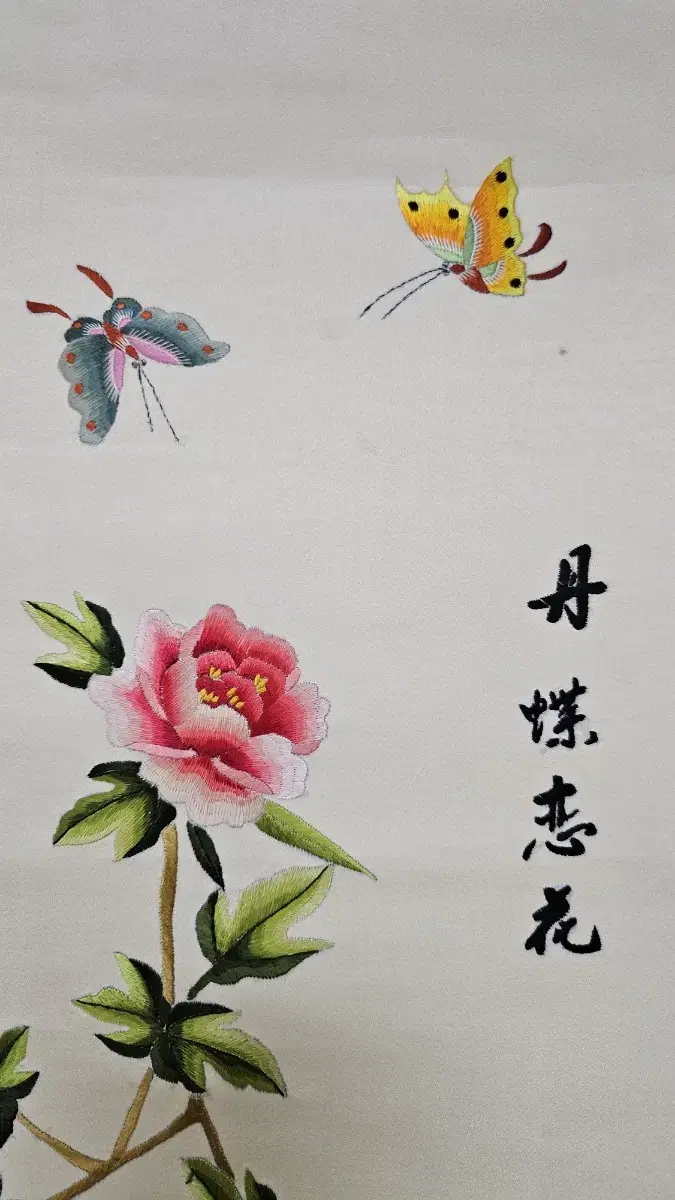 丹蝶恋花